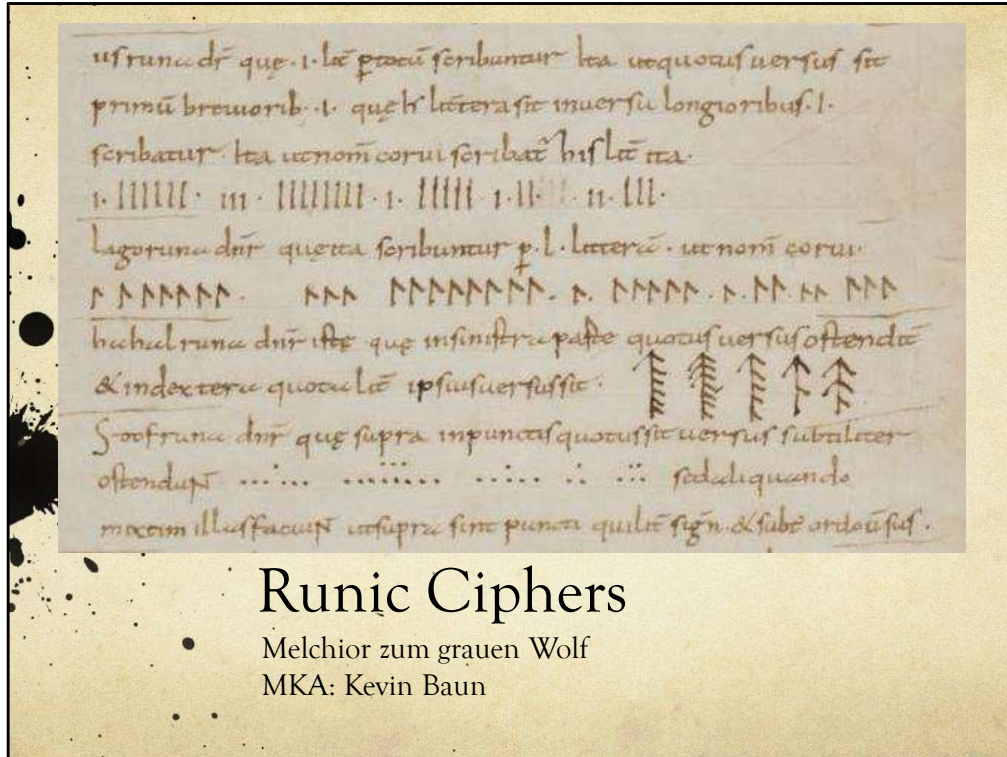 us runa dr̄ quę · ı · lit̄ ꝑtotū scribuntur Ita utquotus uersus sit
primū breuiorib · ı · quę littera sit inuersu longioribus · l ·
scribatur Ita ut nom̄ corui scribat̄ his lit̄ ita ·
ı · llllll · ııı · llllllll · ı · lllll · ı · ll · ıı · lll ·
lagoruna dn̄r quęita scribuntur ꝑ · l · litterā · ut nom̄ corui ·
ᛚ ᛚᛚᛚᛚᛚᛚ · ᛚᛚᛚ ᛚᛚᛚᛚᛚᛚᛚᛚ · ᛚ · ᛚᛚᛚᛚᛚ · ᛚ · ᛚᛚ · ᛚᛚ ᛚᛚᛚ
hahalruna dn̄r istę quę insinistra parte quotus uersus ostendit̄
& indextera quota lit̄ ipsius uersus sit ·
Stofruna dn̄r quę supra inpunctis quotus sit uersus subtiliter
ostenduN̄ sed aliquando
mixtim illas faciuN̄ ut supra sint puncti qui lit̄ sign̄ · & subt̄ ordo
Runic Ciphers
Melchior zum grauen Wolf
MKA: Kevin Baun